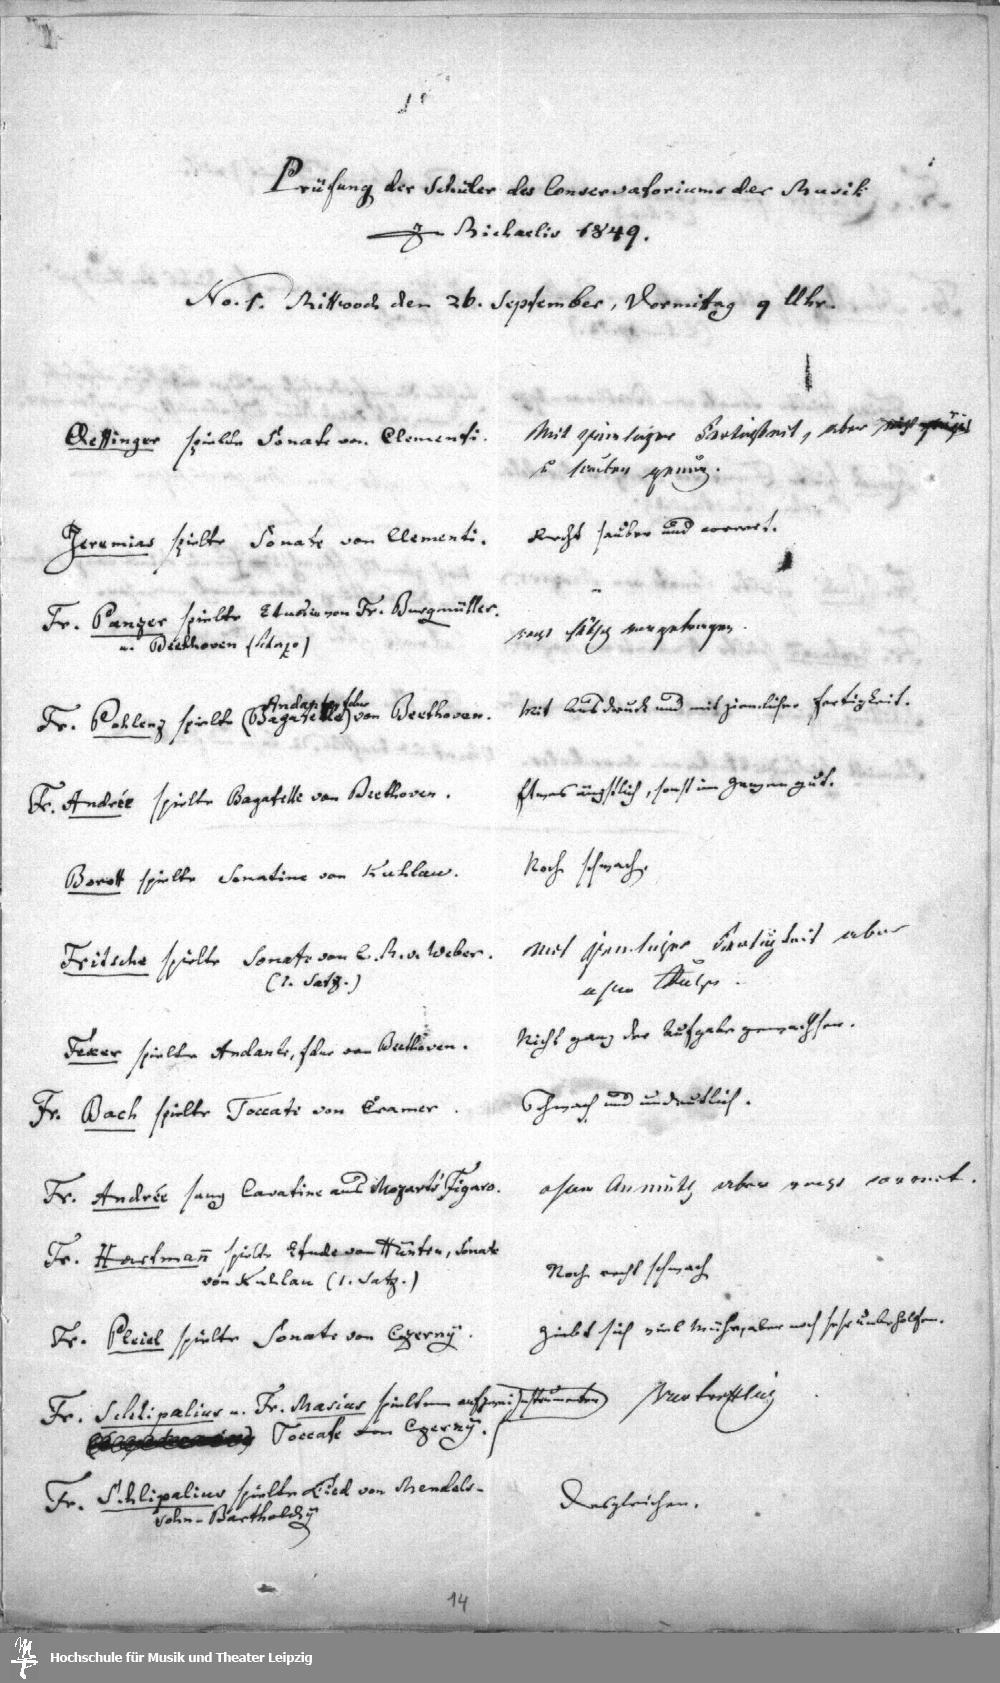 Prüfung der Schüler des Conservatoriums der Musik
zu Michaelis 1849.
No. 1. Mittwoch den 26. September, Vormittag 9 Uhr.
Oettinger spielte Sonate von Clementi. Mit ziemlicher Fertigkeit, aber nicht
u sauber genug.
Jeremias spielte Sonate von Clementi. Recht sauber und correct.
Fr. Panzer spielte Etudien von Fr. Burgmüller. recht hübsch vorgetragen.
u. Beethoven
Fr. Pohlenz spielte (Bagatelle) von Beethoven. Mit Ausdruck und mit ziemlicher Fertigkeit.
Andante
Fr. Andrée spielte Bagatelle von Beethoven. Etwas ängstlich, sonst im Ganzen gut.
Borott spielte Sonatine von Kuhlau. Noch schwach.
Fritsche spielte Sonate von C. M. v. Weber. Mit ziemlicher Fertigkeit aber
(1. Satz.) ohne
Fexer spielte Andante, fdur von Beethoven. Nicht ganz der Aufgabe gewachsen.
Fr. Bach spielte Toccate von Cramer. Schwach und undeutlich.
Fr. Andrée sang Cavatine aus Mozarts Figaro. ohne Anmuth aber recht correct.
Fr. Hartmann spielte Etude von Hünten, Sonate
von Kuhlau (1. Satz.) Noch recht schwach
Fr. Pleiel spielte Sonate von Czerny. Giebt sich viel Mühe, aber noch sehr unbeholfen.
Fr. Schlipalius u. Fr. Masius spielten auf zwei Instrumenten Vortrefflich
Toccate von Czerny.
Fr. Schlipalius spielte Lied von Mendels-
sohn-Bartholdy Desgleichen.
14
Hochschule für Musik und Theater Leipzig